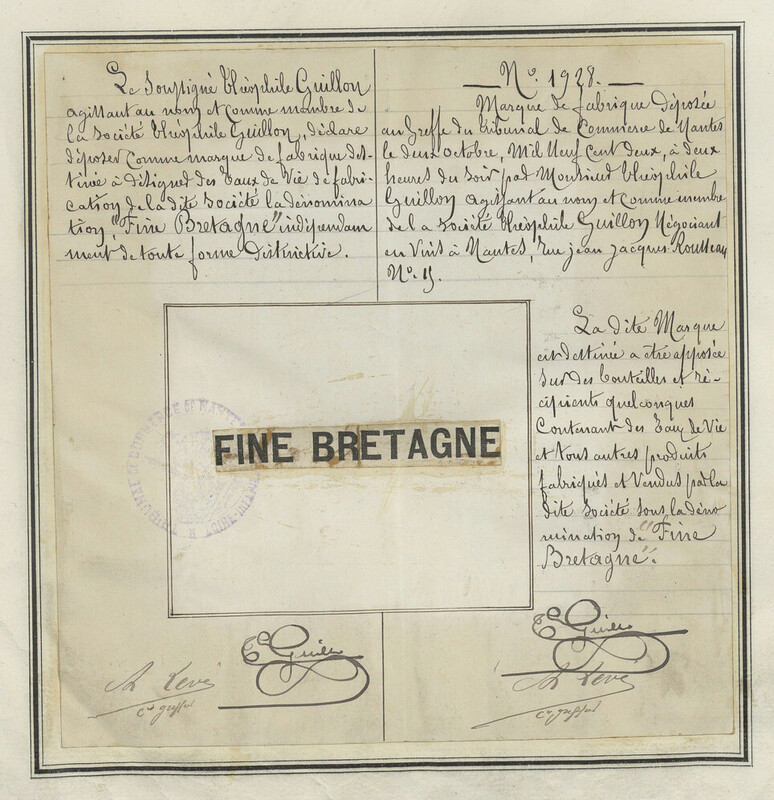 Le Soussigné Théophile Guillon
agissant au nom et comme membre de
la Société Théophile Guillon, déclare
déposer comme marque de fabrique des-
tinée à désigner des Eaux de Vie de fabri-
cation de la dite Société la dénomina
tion, "Fine Bretagne" indépendam
ment de toute forme distinctive.
N° 1928.
Marque de fabrique déposée
au Greffe du Tribunal de Commerce de Nantes
le deux Octobre, Mil Neuf Cent deux, à deux
heures du soir par Monsieur Théophile
Guillon agissant au nom et comme membre
de la Société Théophile Guillon Négociant
en Vins à Nantes, rue jean jacques Rousseau
N°
La dite Marque
est destinée a être apposée
sur des bouteilles et ré-
cipients quelconques
Contenant des Eaux de Vie
et tous autres produits
fabriqués et vendus par la
dite Société sous la déno
mination de "Fine
Bretagne".
FINE BRETAGNE
TRIBUNAL DE COMMERCE DE NANTES
Th Guillon
Th Guillon
Levé
cis greffier
Levé
cis greffier